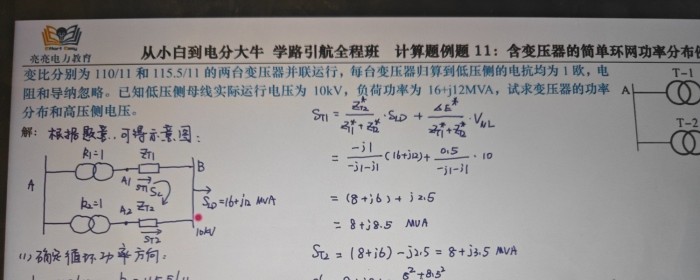 亮亮电力教育
从小白到电分大牛 学路引航全程班 计算题例题 11：含变压器的简单环网功率分布
变比分别为 110/11 和 115.5/11 的两台变压器并联运行，每台变压器归算到低压侧的电抗均为 1 欧，电
阻和导纳忽略。已知低压侧母线实际运行电压为 10kV，负荷功率为 16+j12MVA，试求变压器的功率
分布和高压侧电压。
解：根据题意，可得示意图：
k₁=1 Z_T1
A B
A1 S_T1 S_c
S_LD=16+j12 MVA
k₂=1 A2 Z_T2
S_T2 10kV
(1) 确定循环功率方向：
S_T1 = Z_T2*/(Z_T1*+Z_T2*) · S_LD + ΔE*/(Z_T1*+Z_T2*) · V_NL
= -j1/(-j1-j1) (16+j12) + 0.5/(-j1-j1) · 10
= (8+j6) + j2.5
= 8+j8.5 MVA
S_T2 = (8+j6) - j2.5 = 8+j3.5 MVA
8²+8.5²
A T-1
T-2